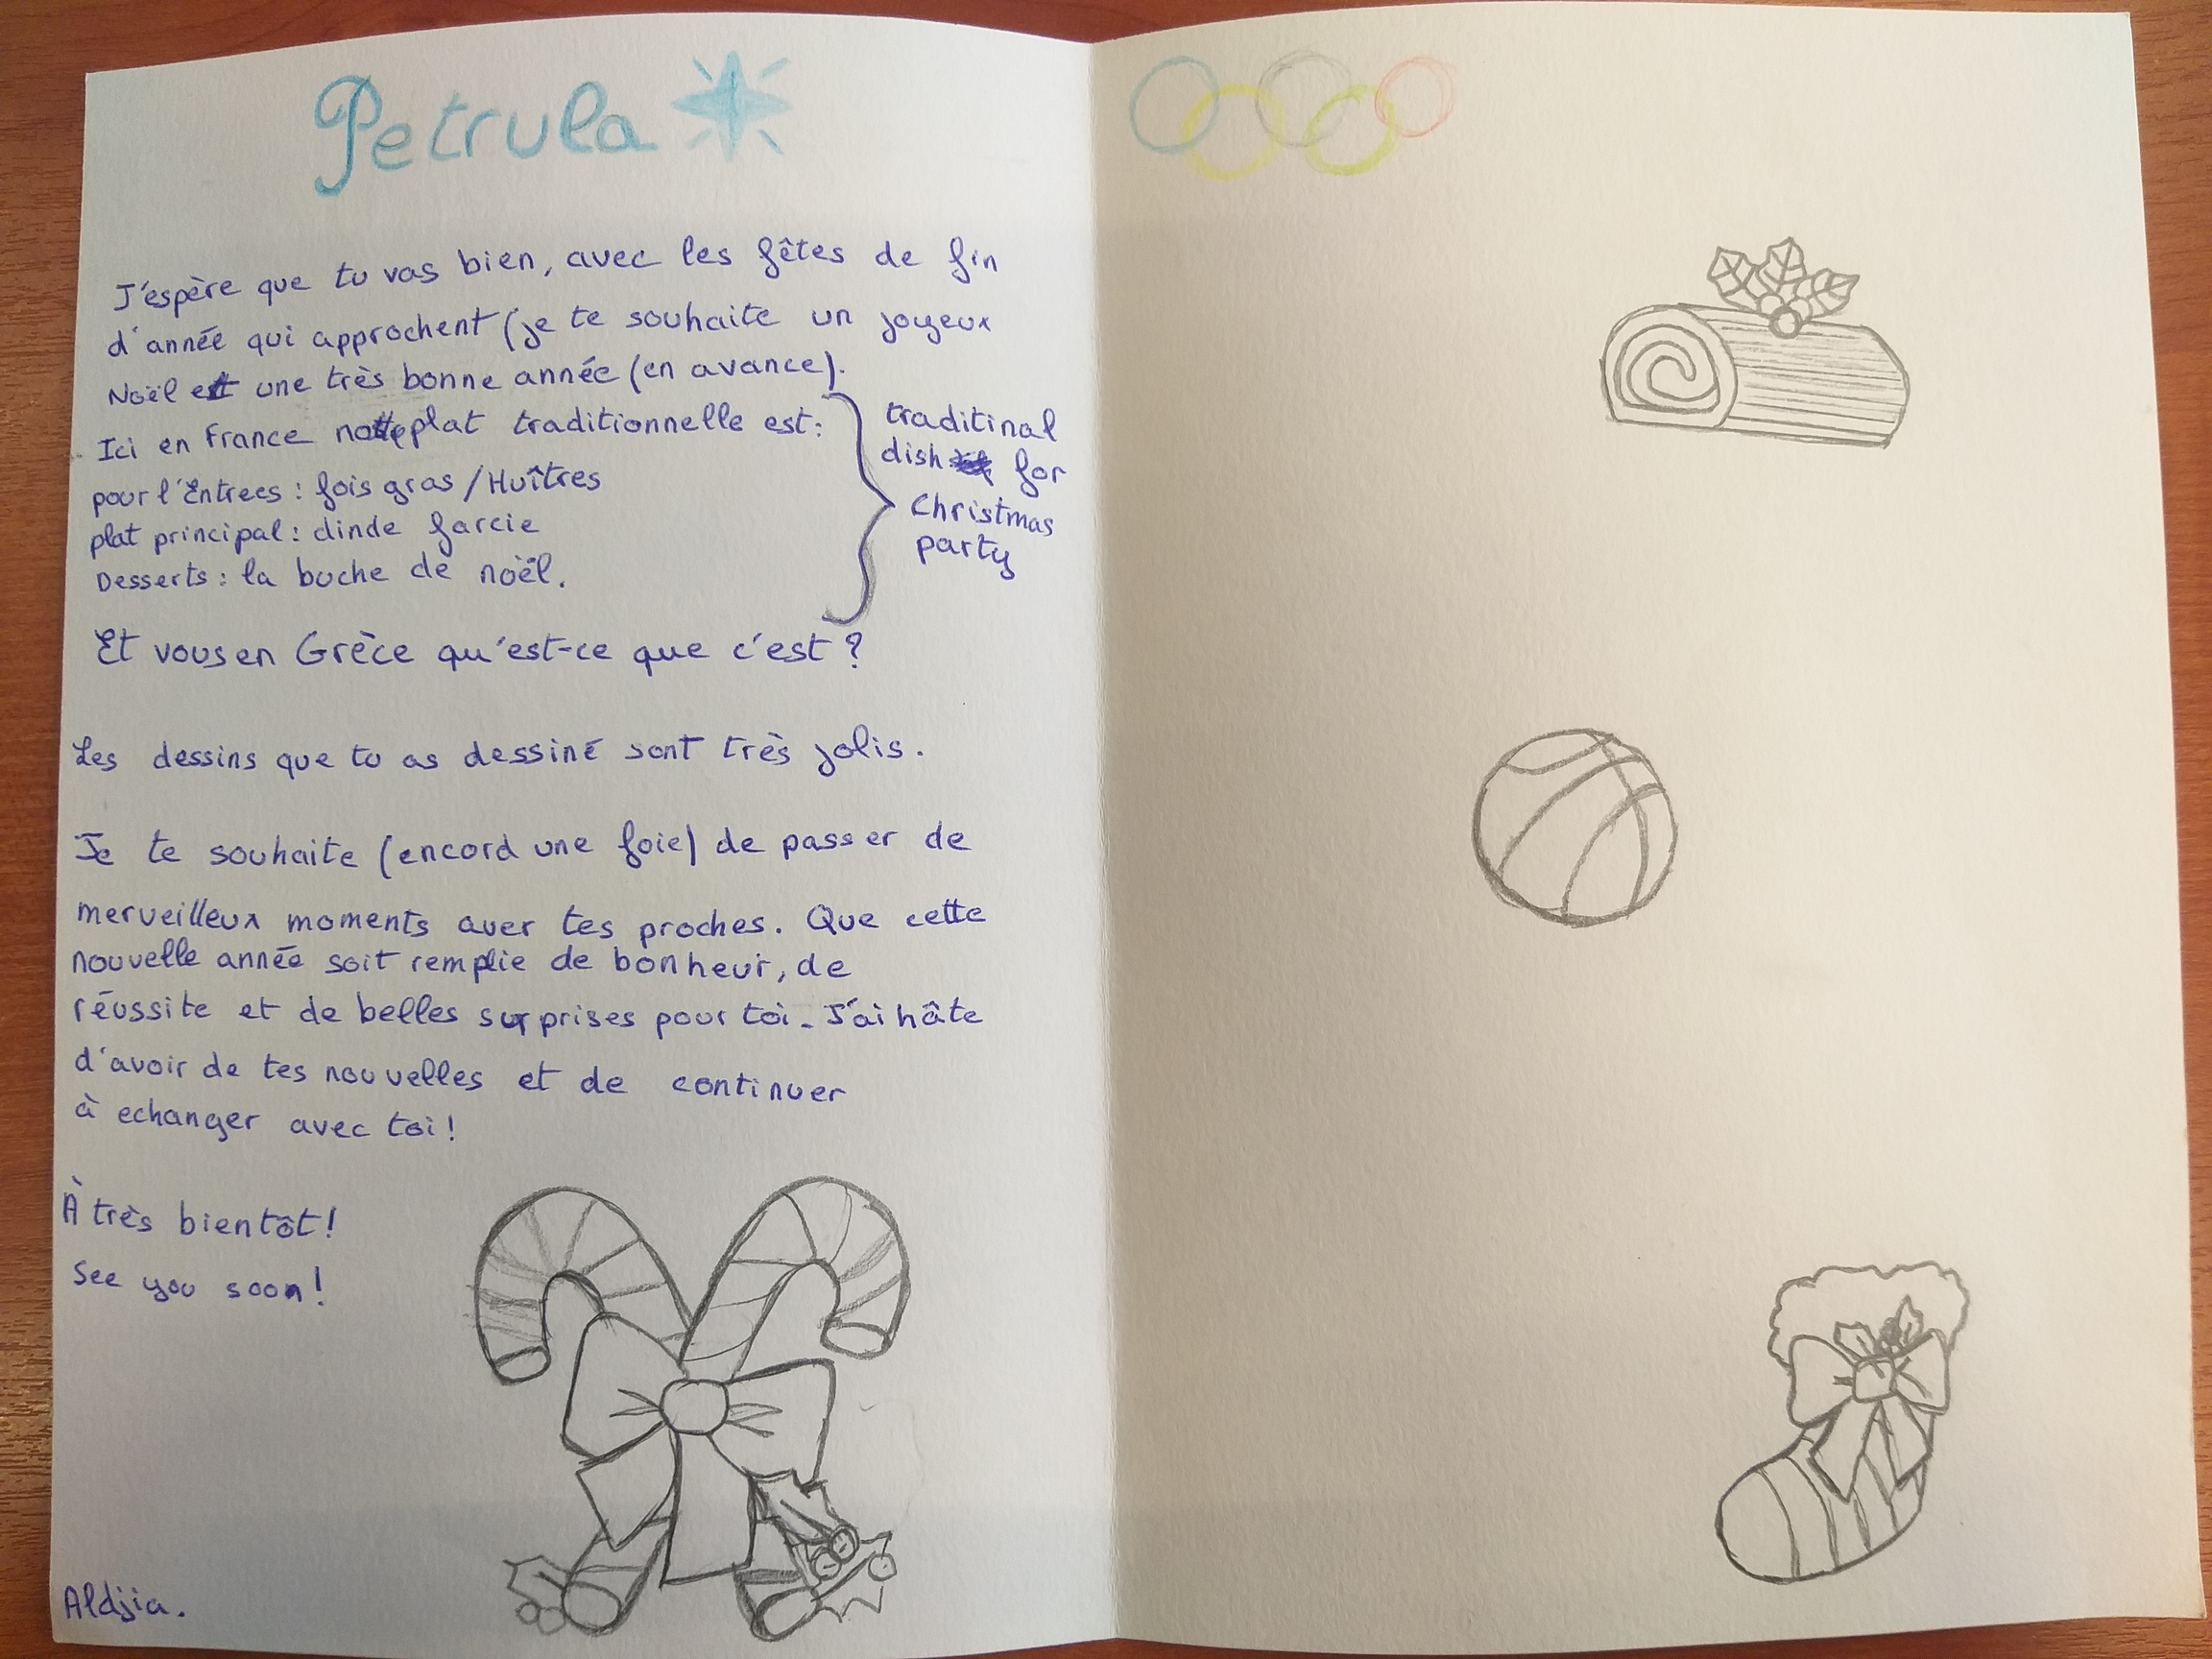 Petrula
J'espère que tu vas bien, avec les fêtes de fin
d'année qui approchent (je te souhaite un joyeux
Noël et une très bonne année (en avance).
Ici en France notre plat traditionnelle est:
pour l'Entrees : fois gras / Huîtres
plat principal : dinde farcie
Desserts : la buche de noël.
traditinal
dish for
Christmas
party
Et vous en Grèce qu'est-ce que c'est ?
Les dessins que tu as dessiné sont très jolis.
Je te souhaite (encord une foie) de passer de
merveilleux moments aver tes proches. Que cette
nouvelle année soit remplie de bonheur, de
réussite et de belles surprises pour toi. J'ai hâte
d'avoir de tes nouvelles et de continuer
à echanger avec toi !
À très bientôt !
See you soon !
Aldjia.